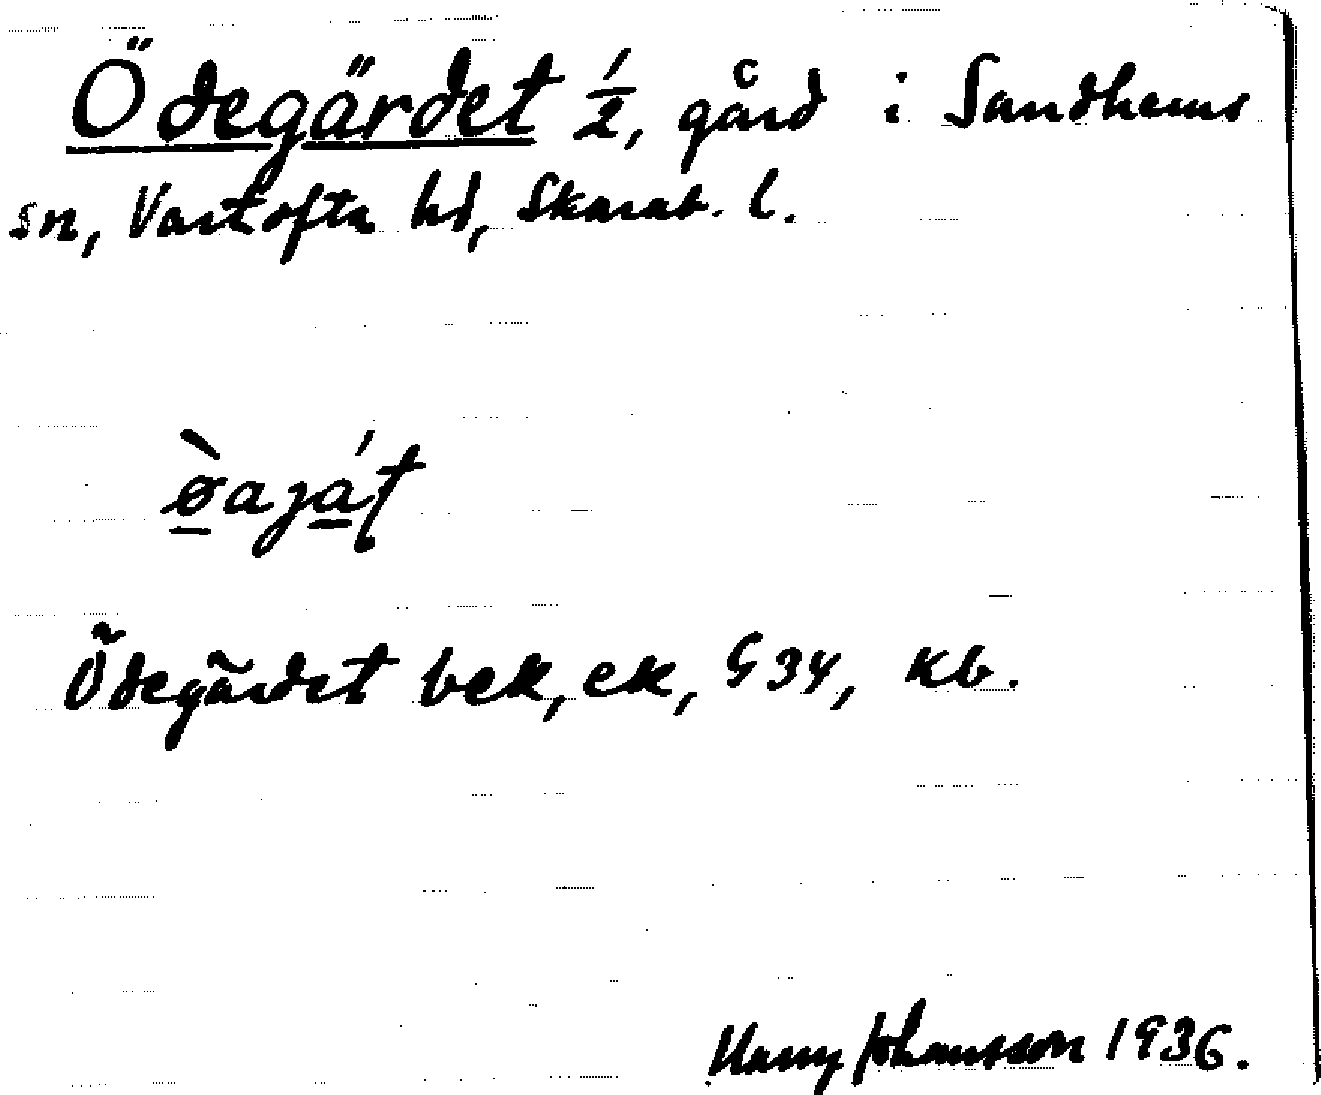 Ödegärdet 1/2, gård i Sandhems
sn, Vartofta hd, Skarab. l.
ø̀aját
Ödegärdet bek, ek, G34, kb.
Harry Johansson 1936.